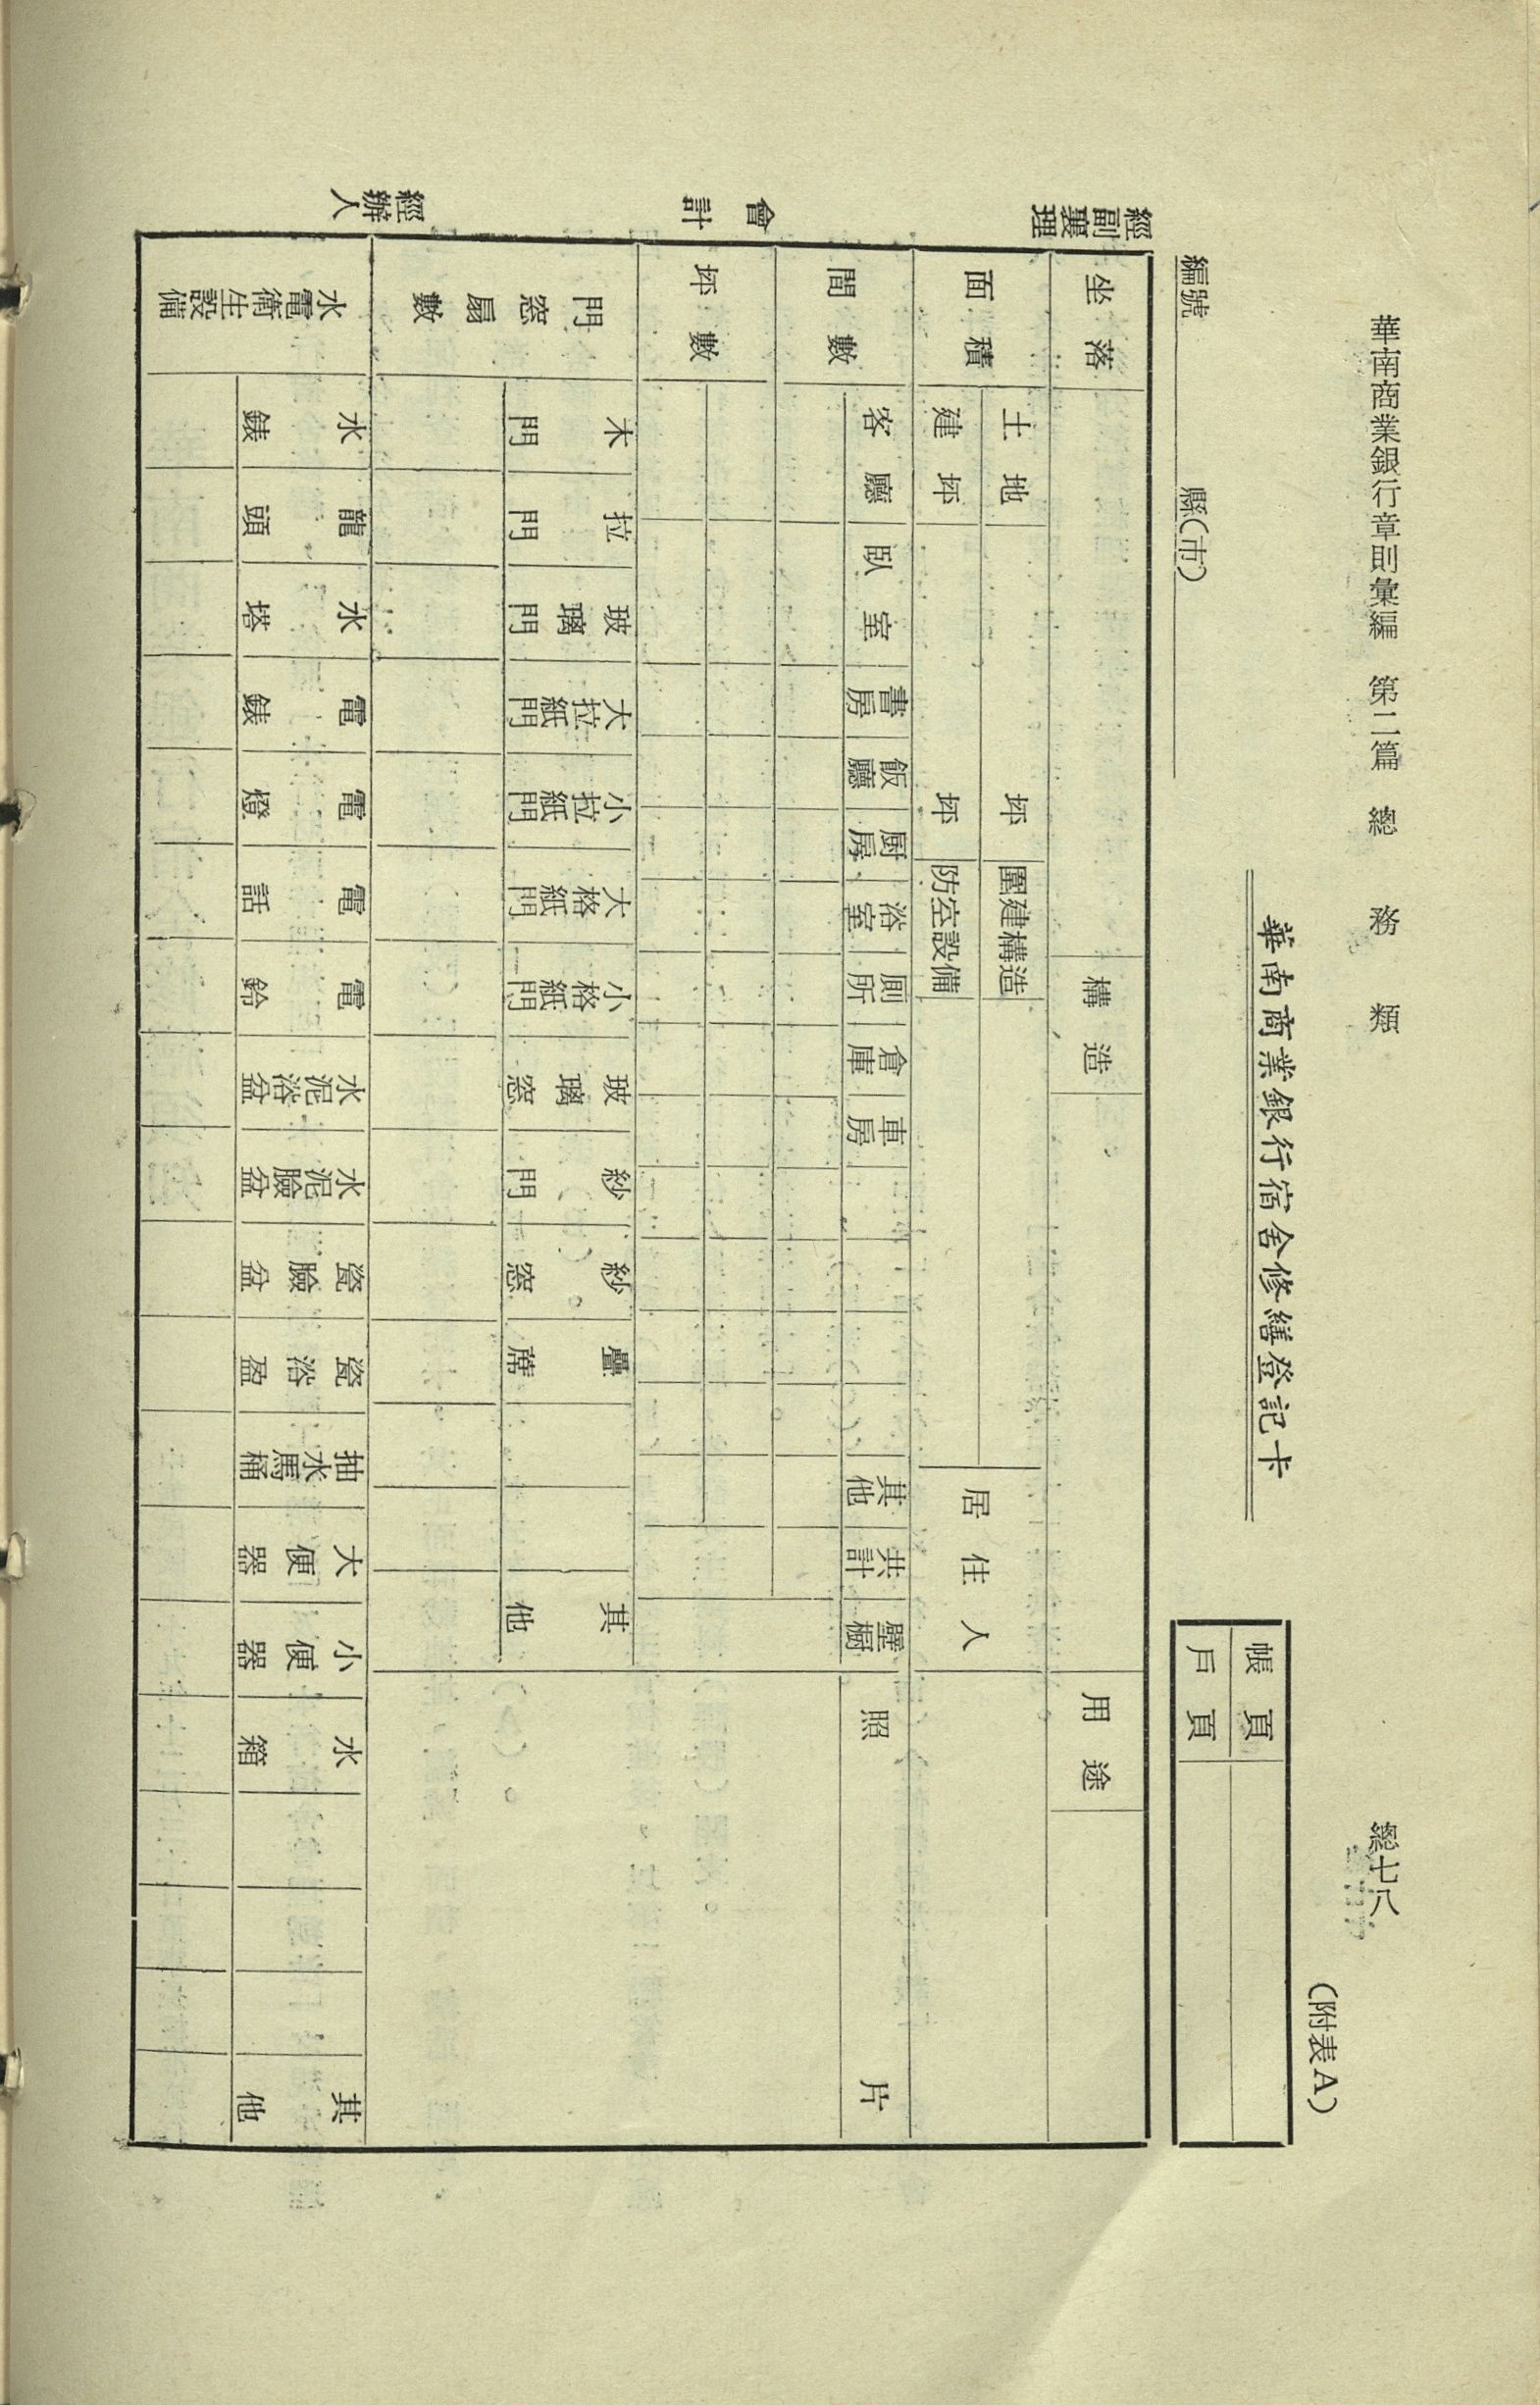 華南商業銀行章則彙編　第二篇　總　務　類
總七八
(附表A)
華南商業銀行宿舍修繕登記卡
帳頁
戶頁
編號　縣(市)
坐落　構造　用途
面積　土地　坪　圍建構造　居住人
建坪　坪　防空設備
間數　客廳　臥室　書房　飯廳　厨房　浴室　厠所　倉庫　車房　其他　共計　壁櫥　照片
坪數
門窓扇數　木門　拉門　玻璃門　大拉紙門　小拉紙門　大格紙門　小格紙門　玻璃窓　紗門　紗窓　疊蓆　其他
水電衛生設備　水錶　龍頭　水塔　電錶　電燈　電話　電鈴　水泥浴盆　水泥臉盆　瓷臉盆　瓷浴盈　抽水馬桶　大便器　小便器　水箱　其他
經副襄理　會計　經辦人